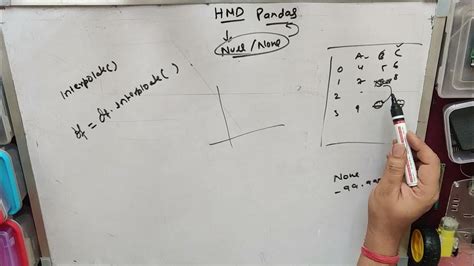 HMD Pandas
Null / None
Interpolate()
df = df.interpolate()
A B C
0 4 5 6
1 2 8
2 -
3 9
None